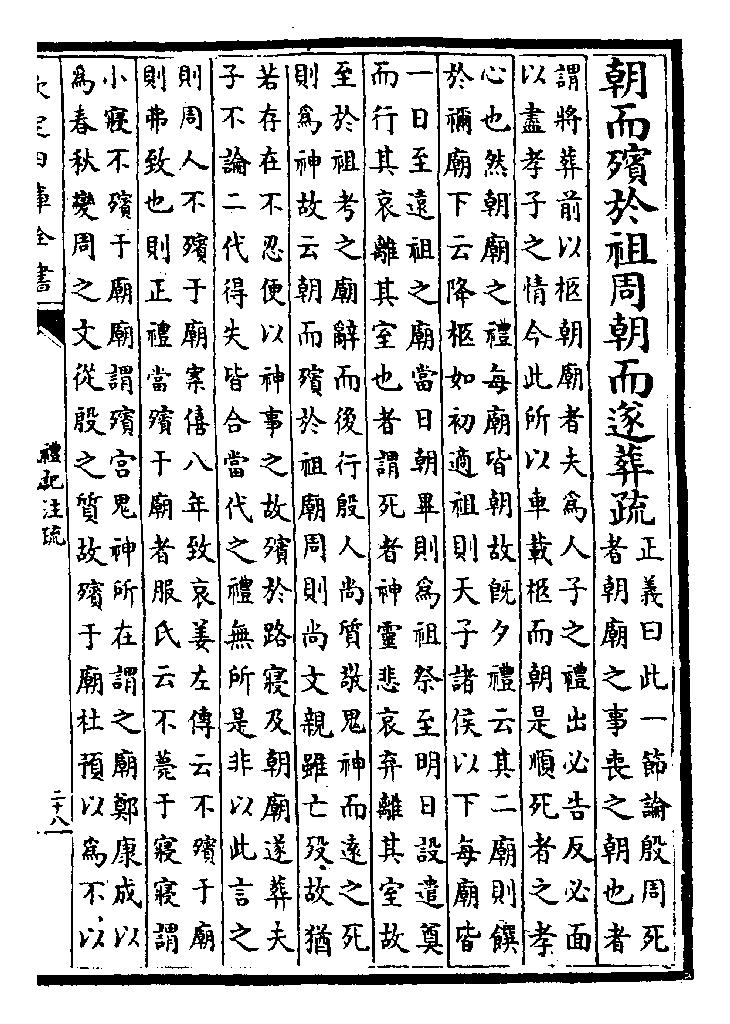 朝而殯於祖周朝而遂葬疏
正義曰此一節論殷周死
者朝廟之事喪之朝也者
謂將葬前以柩朝廟者夫為人子之禮出必告反必面
以盡孝子之情今此所以車載柩而朝是順死者之孝
心也然朝廟之禮每廟皆朝故既夕禮云其二廟則饌
於禰廟下云降柩如初適祖則天子諸侯以下每廟皆
一日至遠祖之廟當日朝畢則為祖祭至明日設遣奠
而行其哀離其室也者謂死者神靈悲哀弃離其室故
至於祖考之廟辭而後行殷人尚質敬鬼神而遠之死
則為神故云朝而殯於祖廟周則尚文親雖亡歿故猶
若存在不忍便以神事之故殯於路寢及朝廟遂葬夫
子不論二代得失皆合當代之禮無所是非以此言之
則周人不殯于廟案僖八年致哀姜左傳云不殯于廟
則弗致也則正禮當殯于廟者服氏云不薨于寢寢謂
小寢不殯于廟廟謂殯宮鬼神所在謂之廟鄭康成以
為春秋變周之文從殷之質故殯于廟杜預以為不以
欽定四庫全書
禮記注疏
二十八